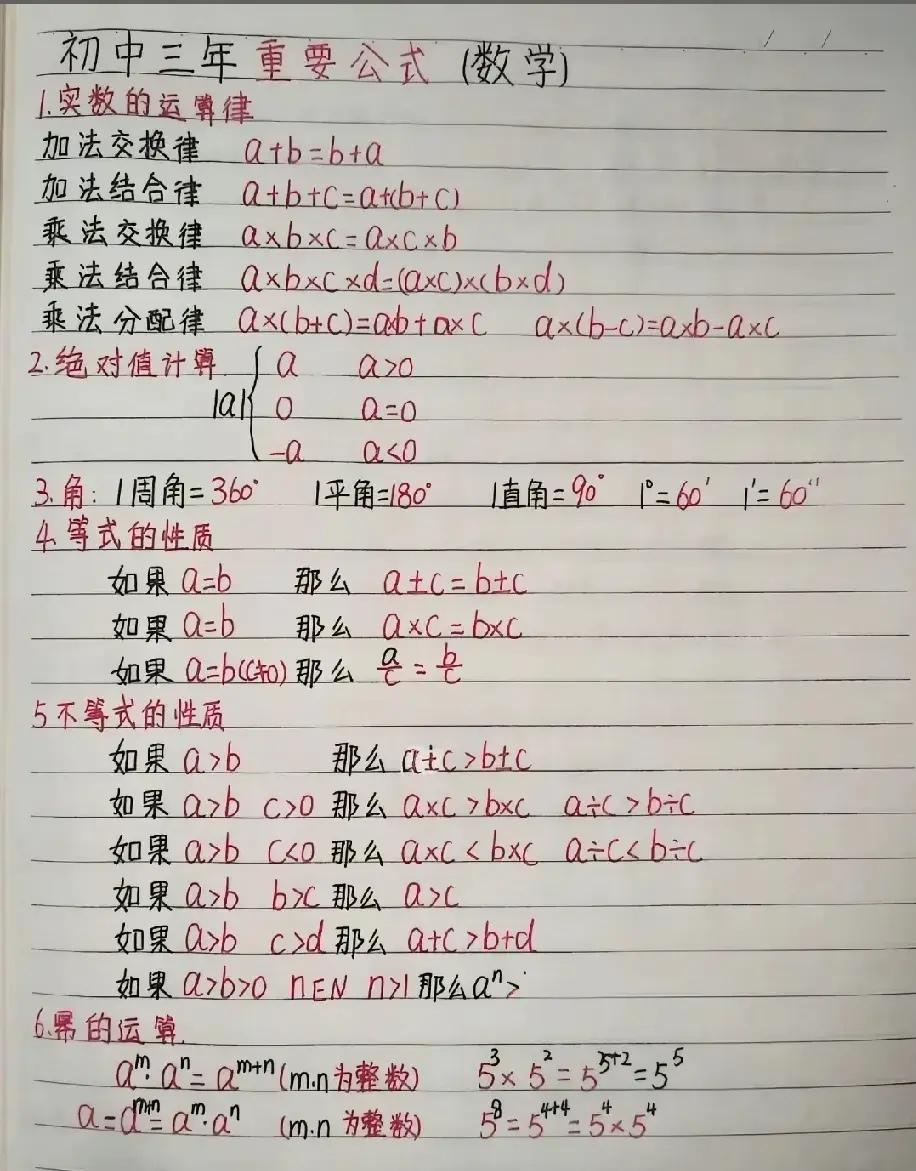 初中三年重要公式 (数学)
1.实数的运算律
加法交换律 a+b=b+a
加法结合律 a+b+c=a+(b+c)
乘法交换律 a×b×c=a×c×b
乘法结合律 a×b×c×d=(a×c)×(b×d)
乘法分配律 a×(b+c)=a×b+a×c a×(b-c)=a×b-a×c
2.绝对值计算 a a>0
|a| { 0 a=0
-a a<0
3.角: 1周角=360° 1平角=180° 1直角=90° 1°=60′ 1′=60″
4.等式的性质
如果 a=b 那么 a±c=b±c
如果 a=b 那么 a×c=b×c
如果 a=b(c≠0) 那么 a/c = b/c
5 不等式的性质
如果 a>b 那么 a±c>b±c
如果 a>b c>0 那么 a×c>b×c a÷c>b÷c
如果 a>b c<0 那么 a×c<b×c a÷c<b÷c
如果 a>b b>c 那么 a>c
如果 a>b c>d 那么 a+c>b+d
如果 a>b>0 n∈N n>1 那么 aⁿ>
6.幂的运算
aᵐ·aⁿ=aᵐ⁺ⁿ (m.n为整数) 5³×5²=5³⁺²=5⁵
a=aᵐ⁺ⁿ=aᵐ·aⁿ (m.n为整数) 5⁸=5⁴⁺⁴=5⁴×5⁴